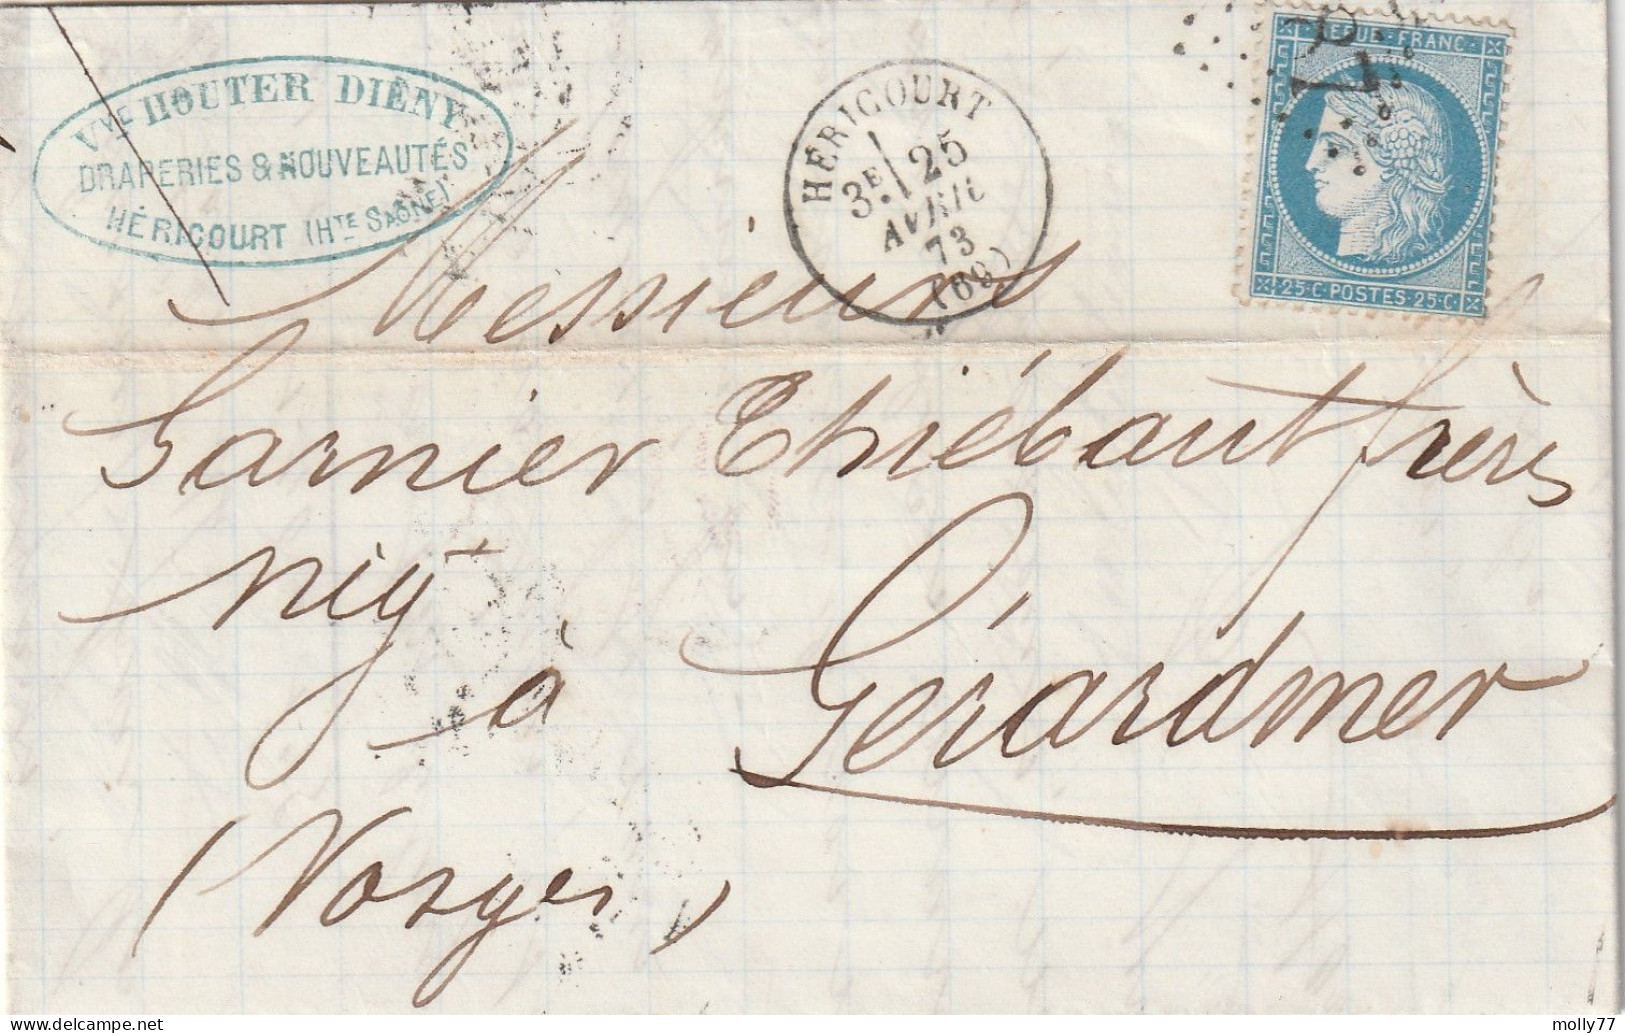 Vve HOUTER DIÉNY
DRAPERIES & NOUVEAUTÉS
HÉRICOURT (HTE SAÔNE)
HÉRICOURT
3E 25
AVRIL
73
(69)
REPUB · FRANC
25 · C · POSTES · 25 · C
Messieurs
Garnier Thiébaut frères
nigt
à Gérardmer
(Vosges)
delcampe.net
molly77